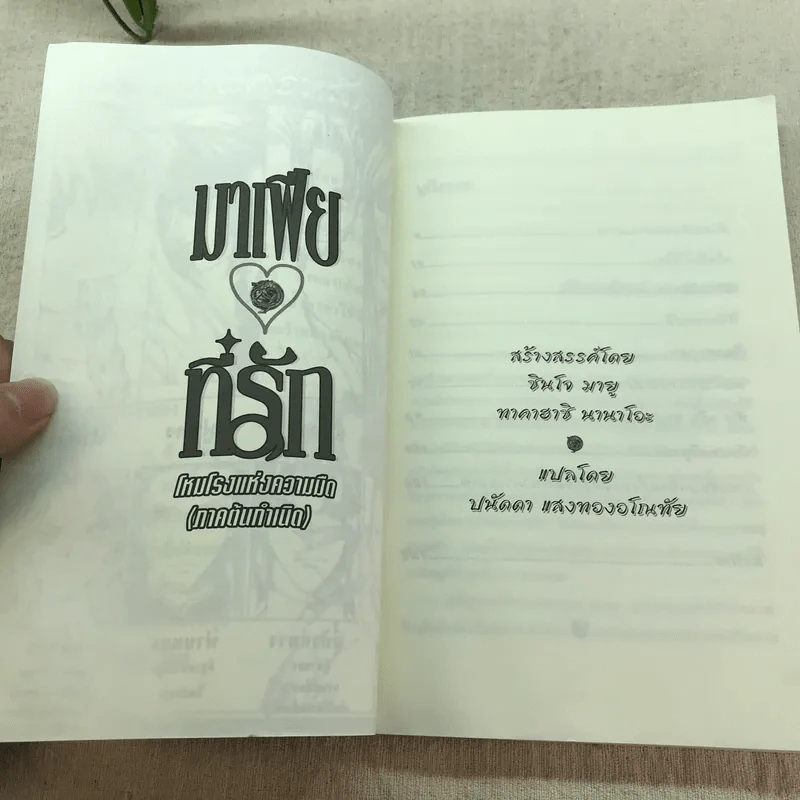 มาเฟีย
ที่รัก
โหมโรงแห่งความมืด
(ภาคต้นกำเนิด)
สร้างสรรค์โดย
ชินโจ มายู
ทาคาฮาชิ นานาโอะ
แปลโดย
ปนัดดา แสงทองอโณทัย